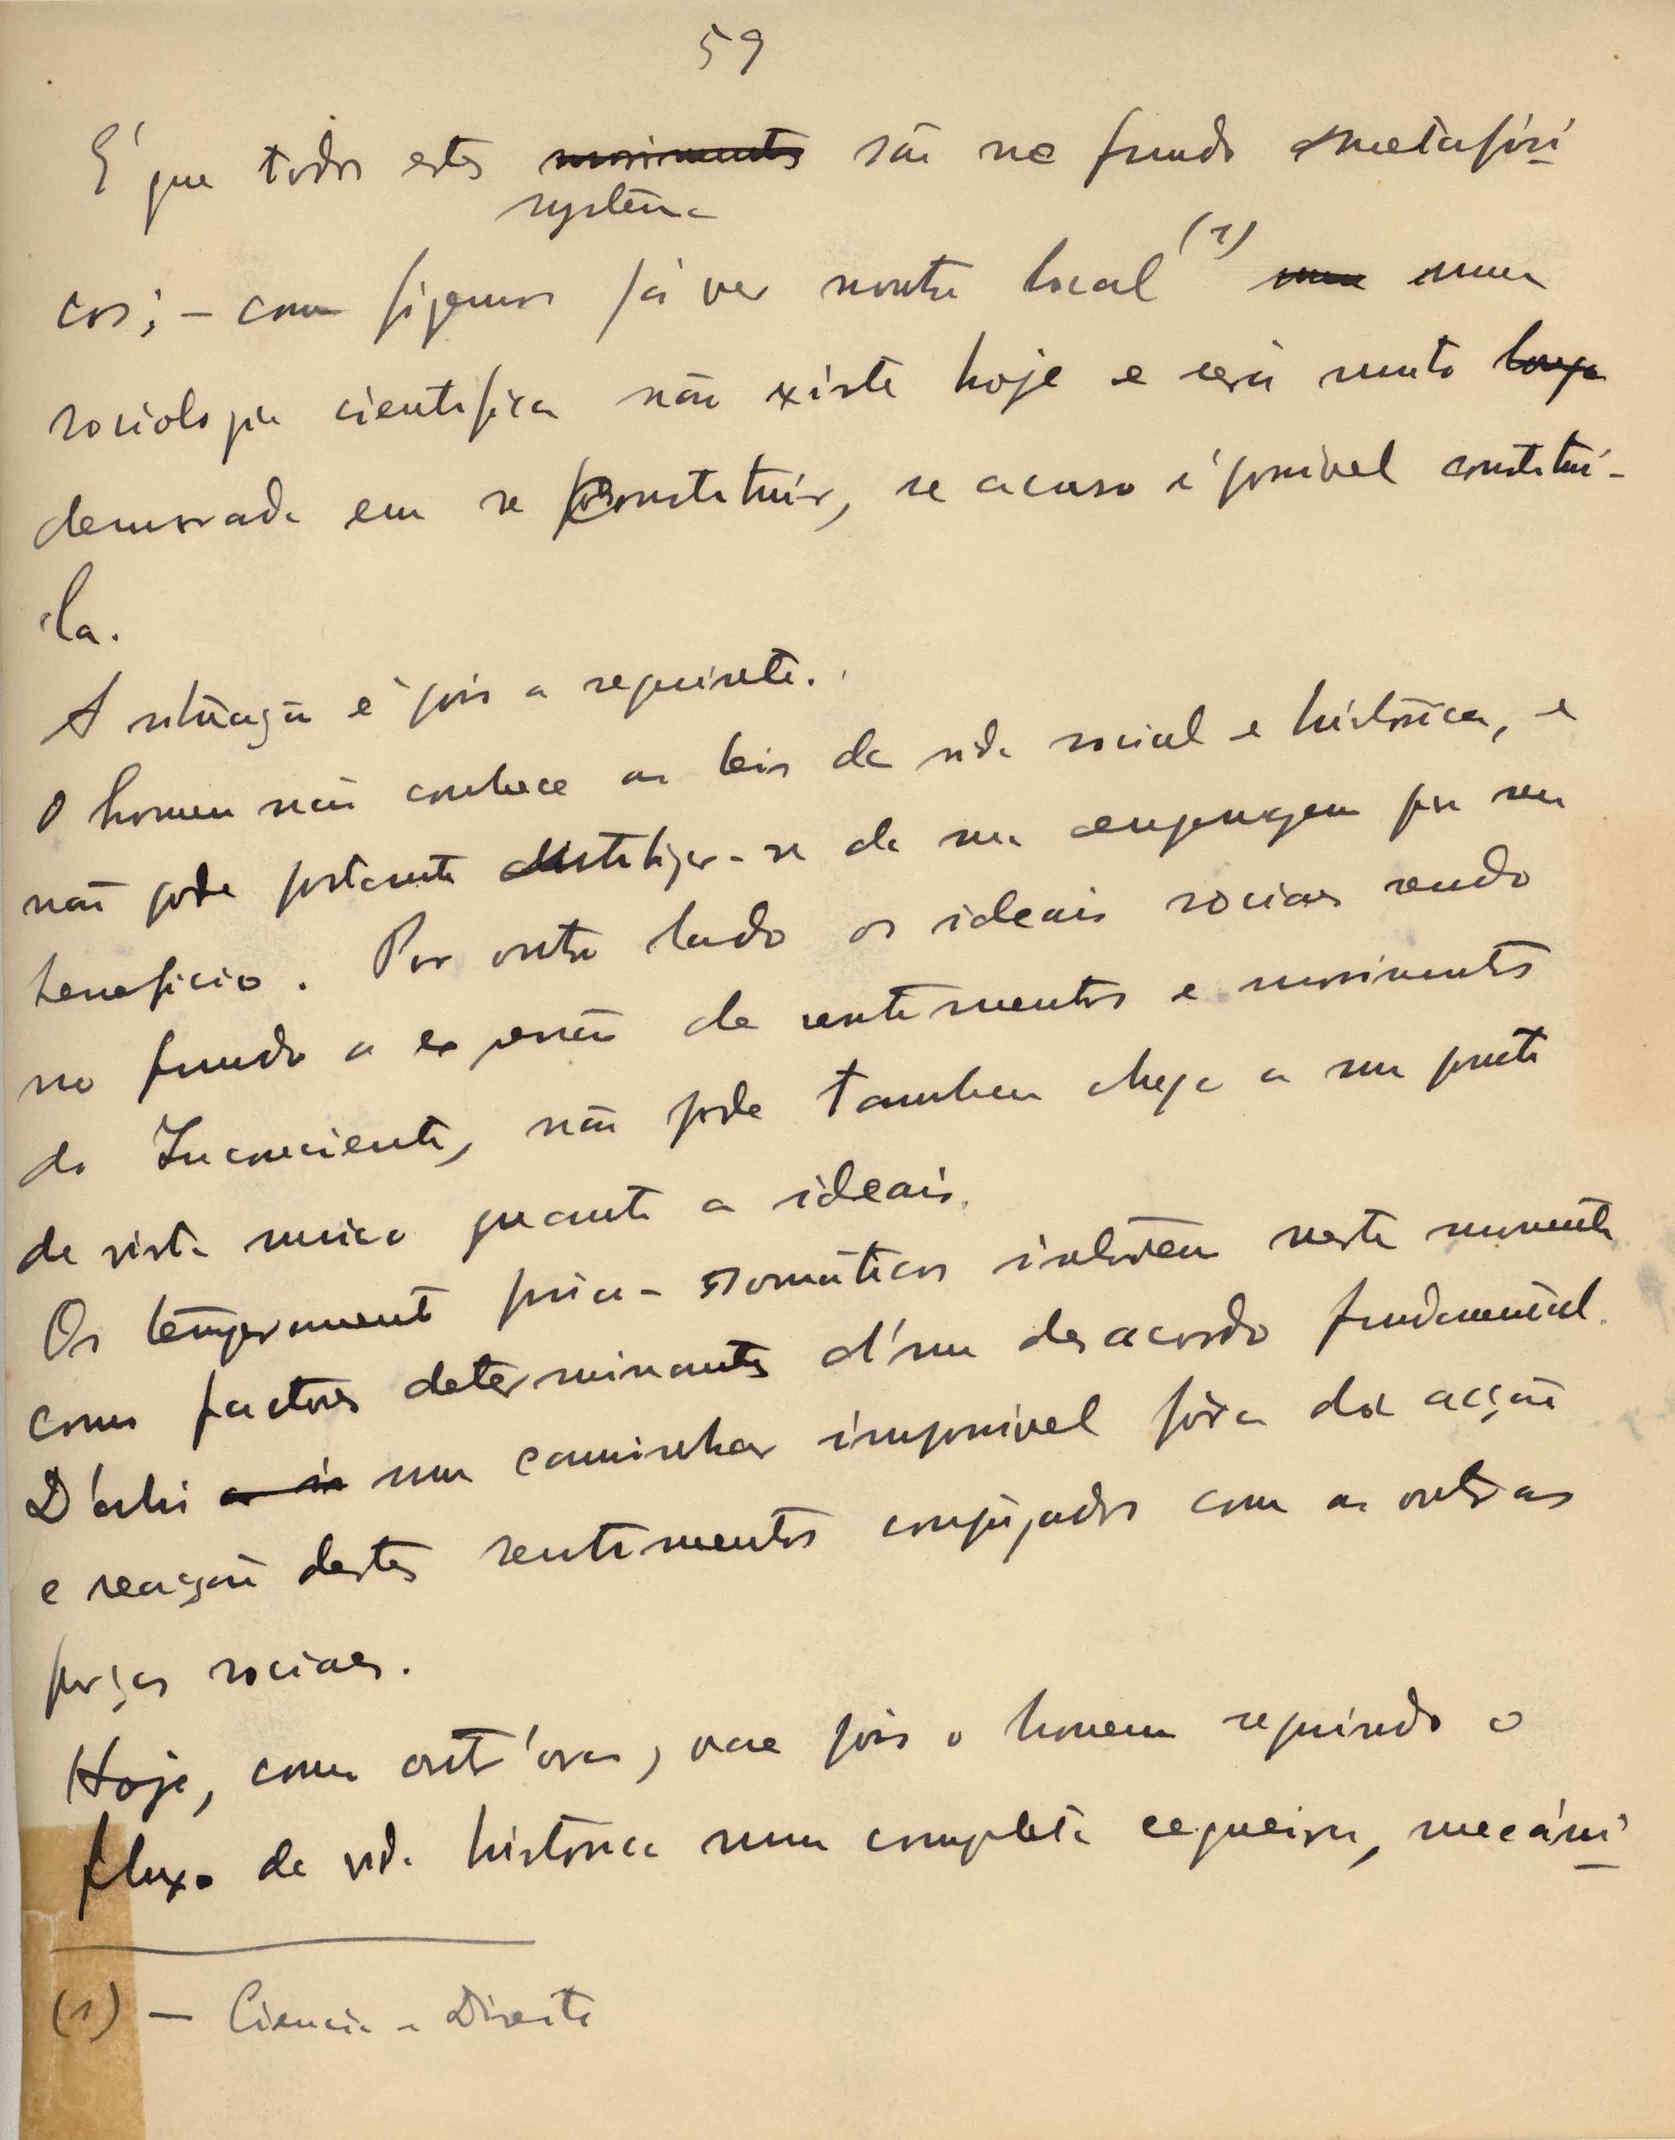 59
É que todos estes ~~movimentos~~ são no fundo metafísi
systema
cos; - como fizemos já ver noutro local (1) uma
sociologia cientifica não existe hoje e será muito ~~longa~~
demorada em se constituir, se acaso é possivel constitui-
-la.
A situação é pois a seguinte.
O homem não conhece as leis da vida social e historica, e
não pode portanto -se da sua engrenagem para seu
beneficio. Por outro lado os ideais sociaes sendo
no fundo a expressão de sentimentos e movimentos
do Inconsciente, não pode tambem chegar a um ponto
de vista unico quanto a ideais.
Os temperamentos psico-somáticos intervêm neste momento
como factores determinantes d'um desacordo fundamental.
D'ahi um caminhar impossivel fóra da acção
e reacção destes sentimentos conjugados com as outras
forças sociaes.
Hoje, como outr'ora, vae pois o homem seguindo o
fluxo da vida historica numa completa cegueira, mecâni
(1) — Ciencia e Direito